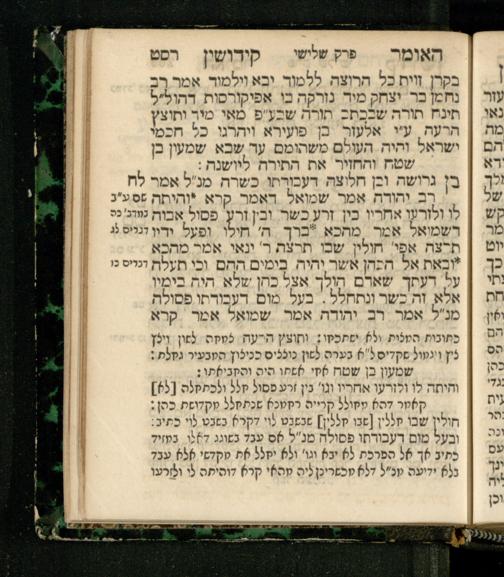 האומר פרק שלישי קידושין רסט
בקרן זוית כל הרוצה ללמוד יבא וילמוד אמר רב
נחמן בר יצחק מיד נזרקה בו אפיקורסות דהול״ל
תינח תורה שבכתב תורה שבע״פ מאי מיד ותוצץ
הרעה ע״י אלעזר בן פועירא ויהרגו כל חכמי
ישראל והיה העולם משתומם עד שבא שמעון בן
שטח והחזיר את התורה ליושנה :
בן גרושה ובן חלוצה דעבודתו כשרה מנ״ל אמר לח
רב יהודה אמר שמואל דאמר קרא *והיתה שם ע״ב
לו ולזרעו אחריו בין זרע כשר ובין זרע פסול אבוה במדב׳ כה
דשמואל אמר מהכא *ברך ה׳ חילו ופעל ידיו דברים לג
תרצה אפי׳ חולין שבו תרצה ר׳ ינאי אמר מהכא
*ובאת אל הכהן אשר יהיה בימים ההם וכי תעלה דברים כו
על דעתך שאדם הולך אצל כהן שלא היה בימיו
אלא זה כשר ונתחלל . בעל מום דעבודתו פסולה
מנ״ל אמר רב יהודה אמר שמואל אמר קרא
כתובות המלות ולא ישתכחו : ותוצץ הרעה
שמעון בן שטח אחי אשתו היה והחביאתו :
והיתה לו ולזרעו אחריו וגו׳ בין זרע פסול חלל ולכתחלה [לא]
קאמר דהא מחולל קרייה רחמנא שנתחלל מקדושת כהן :
חולין שבו חללין [שבו חללין] שבשבט לוי דקרא בשבט לוי כתיב :
ובעל מום דעבודתו פסולה מנ״ל אם עבד בשוגג דאלו במזיד
כתיב אך אל הפרכת לא יבא וגו׳ ולא יחלל את מקדשי אלא עבד
בלא ידיעה מנ״ל דלא מכשרינן ליה מהאי קרא דוהיתה לו ולזרעו